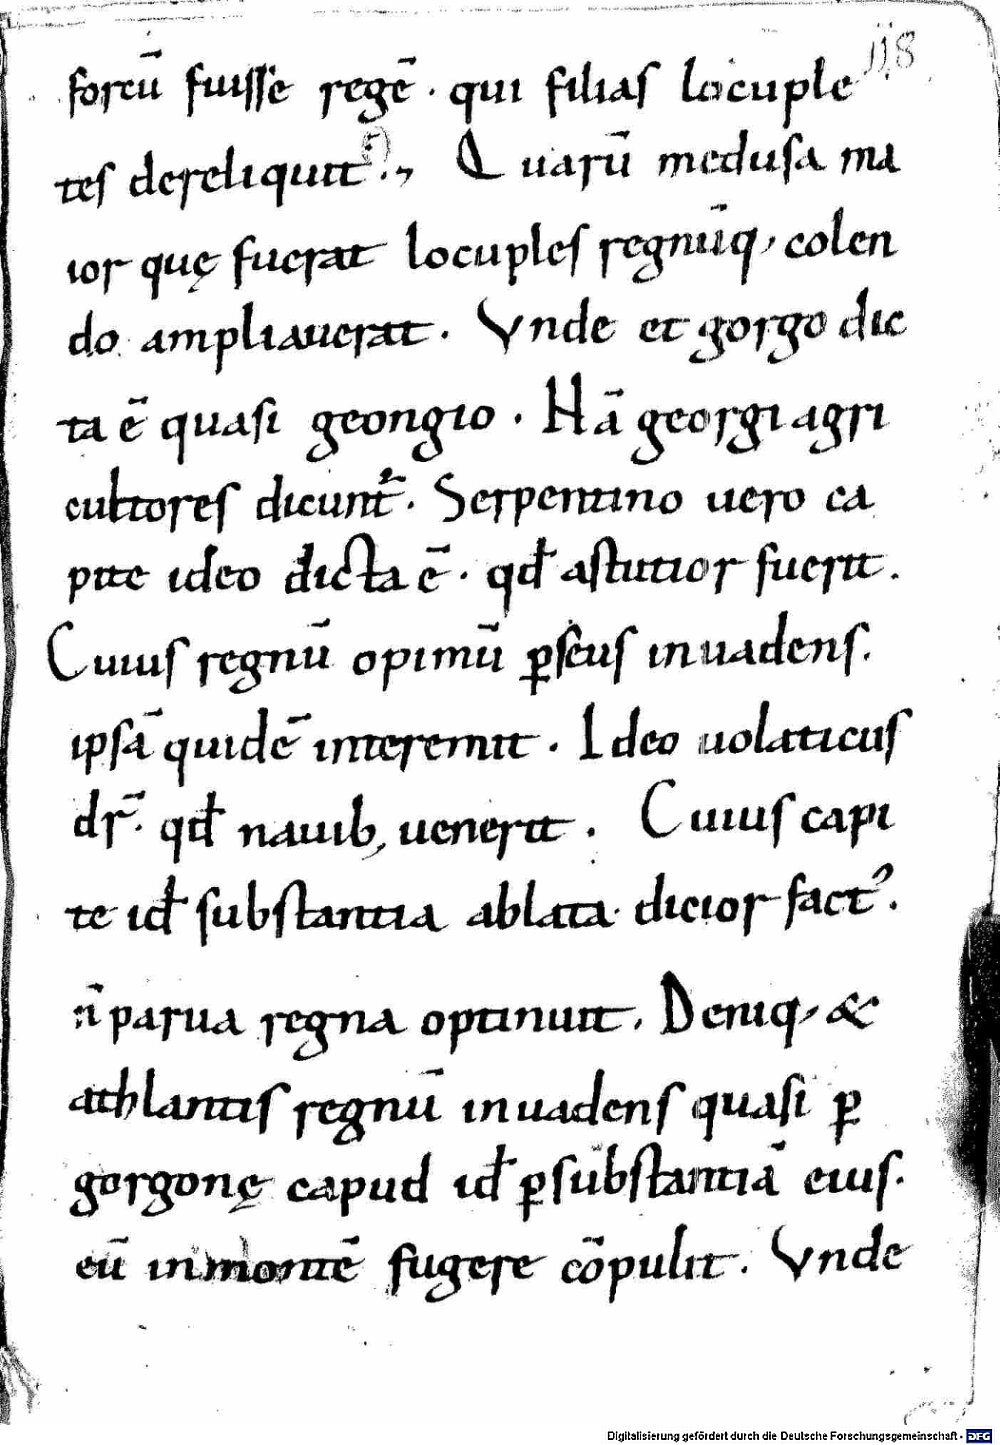 118
forcū fuisse regē · qui filias locuple
tes dereliquit ·, Quarū medusa ma
ior quę fuerat locuples regnūq, colen
do ampliauerat . Vnde et gorgo dic
ta ē quasi geongio . Hā georgi agri
cultores dicunt᷑ . Serpentino uero ca
pite ideo dicta ē . qd̄ astutior fuerit .
Cuius regnū opimū ꝑseus inuadens .
ipsā quidē interemit . Ideo uolaticus
dr̄ . qd̄ nauib, uenerit . Cuius capi
te id̄ substantia ablata dicior factꝰ .
n̄ parua regna optinuit . Deniq, &
athlantis regnū inuadens quasi ꝑ
gorgonę capud id̄ ꝑ substantiā eius .
eū in montē fugere cōpulit . Vnde
Digitalisierung gefördert durch die Deutsche Forschungsgemeinschaft - DFG